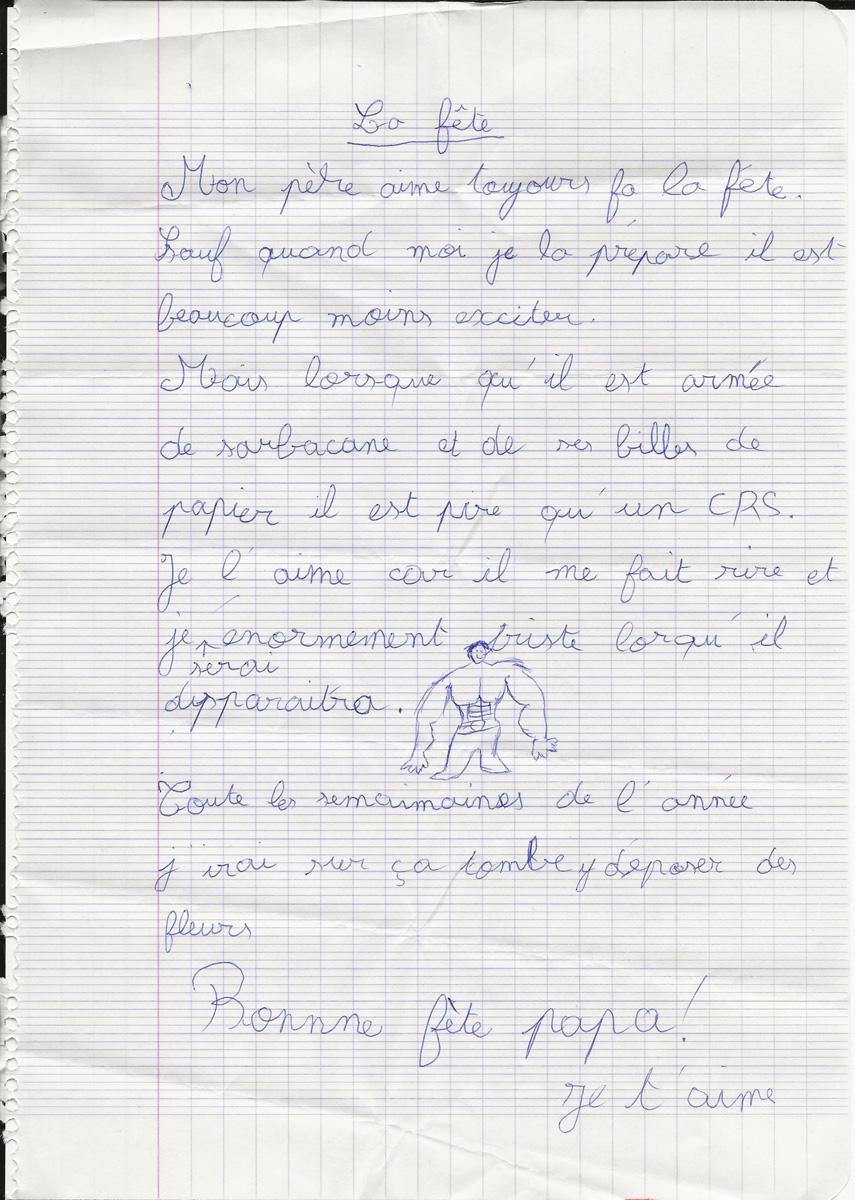 La fête
Mon pètre aime toujours fa la fête.
Sauf quand moi je la prépare il est
beaucoup moins exciter.
Mais lorsque qu'il est armée
de sarbacane et de ses billes de
papier il est pire qu'un CRS.
Je l'aime car il me fait rire et
je énormement triste lorqu'il
serai
disparaitra.
Toute les semaimaines de l'année
j'irai sur ça tombe y déposer des
fleurs
Bonnne fête papa!
Je t'aime